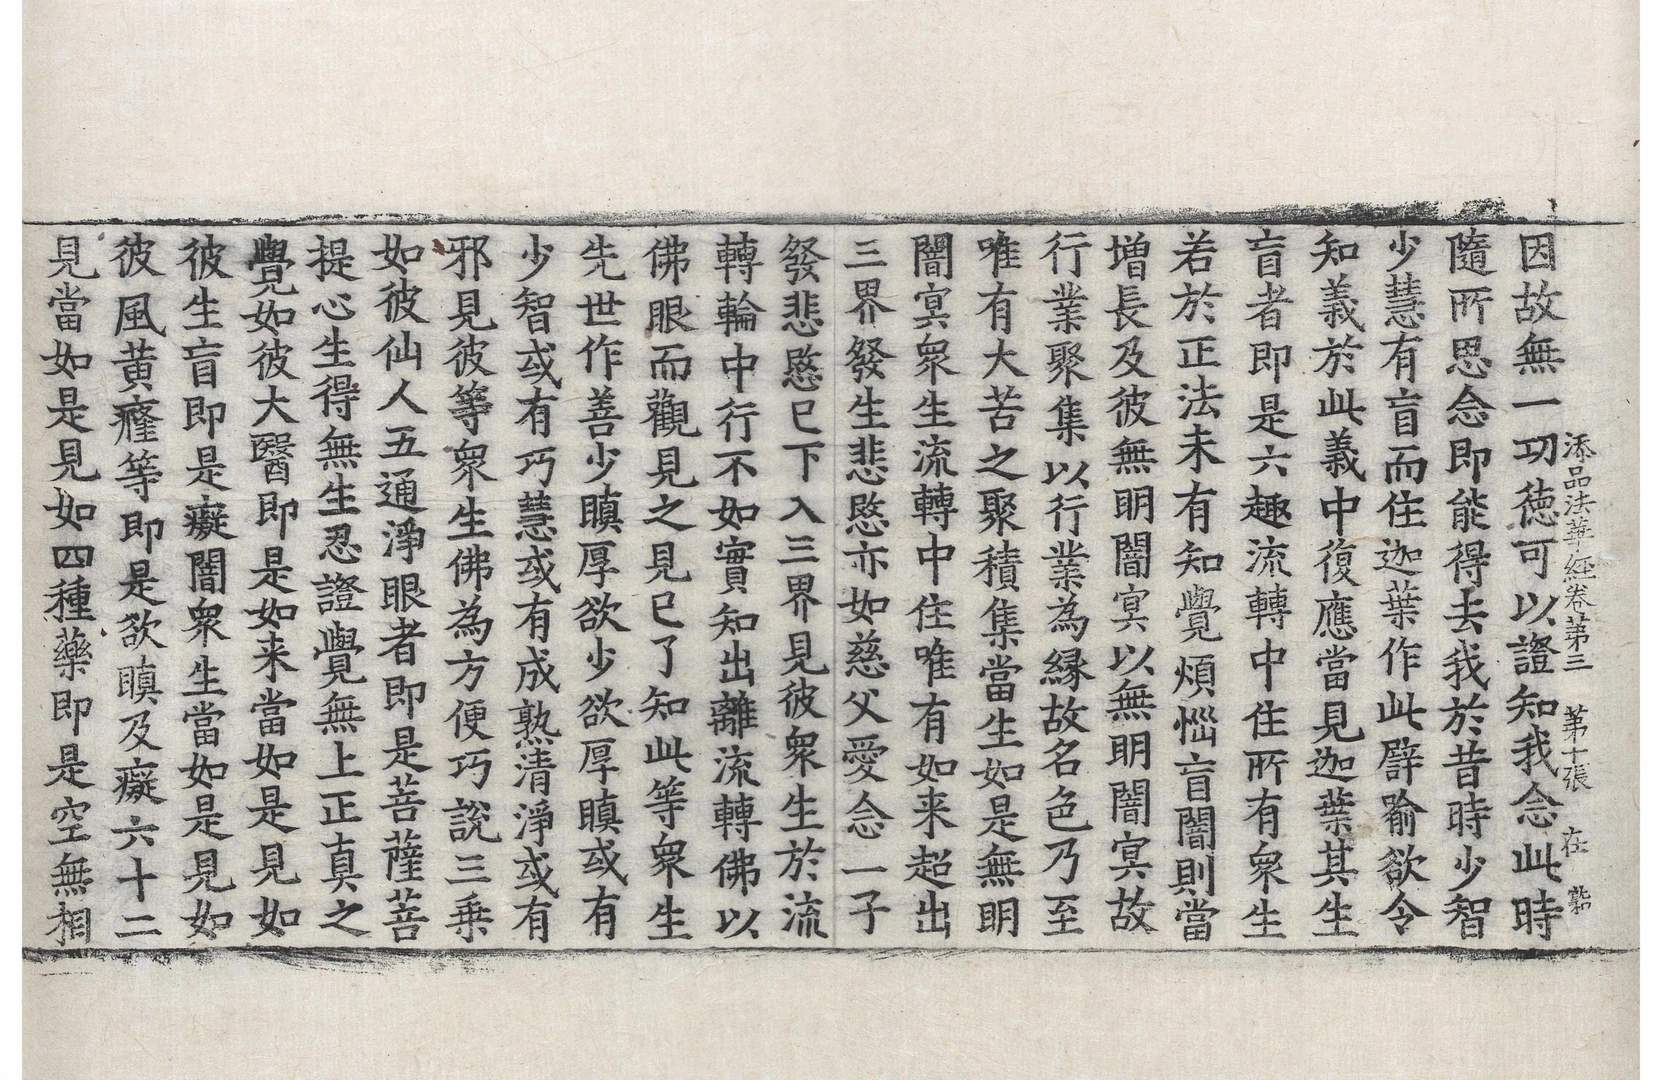 添品法華經卷第三　第十張　在
因故無一功徳可以證知我念此時
隨所思念即能得去我於昔時少智
少慧有盲而住迦葉作此辟喻欲令
知義於此義中復應當見迦葉其生
盲者即是六趣流轉中住所有衆生
若於正法未有知覺煩惱盲闇則當
增長及彼無明闇冥以無明闇冥故
行業聚集以行業為縁故名色乃至
唯有大苦之聚積集當生如是無明
闇冥衆生流轉中住唯有如来超出
三界發生悲愍亦如慈父愛念一子
發悲愍已下入三界見彼衆生於流
轉輪中行不如實知出離流轉佛以
佛眼而觀見之見已了知此等衆生
先世作善少瞋厚欲少欲厚瞋或有
少智或有巧慧或有成熟清淨或有
邪見彼等衆生佛為方便巧說三乗
如彼仙人五通淨眼者即是菩薩菩
提心生得無生忍證覺無上正真之
覺如彼大醫即是如来當如是見如
彼生盲即是癡闇衆生當如是見如
彼風黄癊等即是欲瞋及癡六十二
見當如是見如四種藥即是空無相